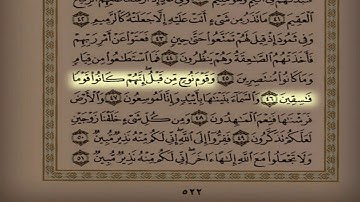 ٱلْعَقِيمَ ٤١ مَا تَذَرُ مِن شَىْءٍ أَتَتْ عَلَيْهِ إِلَّا جَعَلَتْهُ كَٱلرَّمِيمِ ٤٢
وَفِى ثَمُودَ إِذْ قِيلَ لَهُمْ تَمَتَّعُوا۟ حَتَّىٰ حِينٍ ٤٣ فَعَتَوْا۟ عَنْ أَمْرِ رَبِّهِمْ
فَأَخَذَتْهُمُ ٱلصَّٰعِقَةُ وَهُمْ يَنظُرُونَ ٤٤ فَمَا ٱسْتَطَٰعُوا۟ مِن قِيَامٍ
وَمَا كَانُوا۟ مُنتَصِرِينَ ٤٥ وَقَوْمَ نُوحٍ مِّن قَبْلُ إِنَّهُمْ كَانُوا۟ قَوْمًا
فَٰسِقِينَ ٤٦ وَٱلسَّمَآءَ بَنَيْنَٰهَا بِأَيْي۟دٍ وَإِنَّا لَمُوسِعُونَ ٤٧ وَٱلْأَرْضَ
فَرَشْنَٰهَا فَنِعْمَ ٱلْمَٰهِدُونَ ٤٨ وَمِن كُلِّ شَىْءٍ خَلَقْنَا زَوْجَيْنِ
لَعَلَّكُمْ تَذَكَّرُونَ ٤٩ فَفِرُّوٓا۟ إِلَى ٱللَّهِ إِنِّى لَكُم مِّنْهُ نَذِيرٌ مُّبِينٌ ٥٠
وَلَا تَجْعَلُوا۟ مَعَ ٱللَّهِ إِلَٰهًا ءَاخَرَ إِنِّى لَكُم مِّنْهُ نَذِيرٌ مُّبِينٌ ٥١
٥٢٢